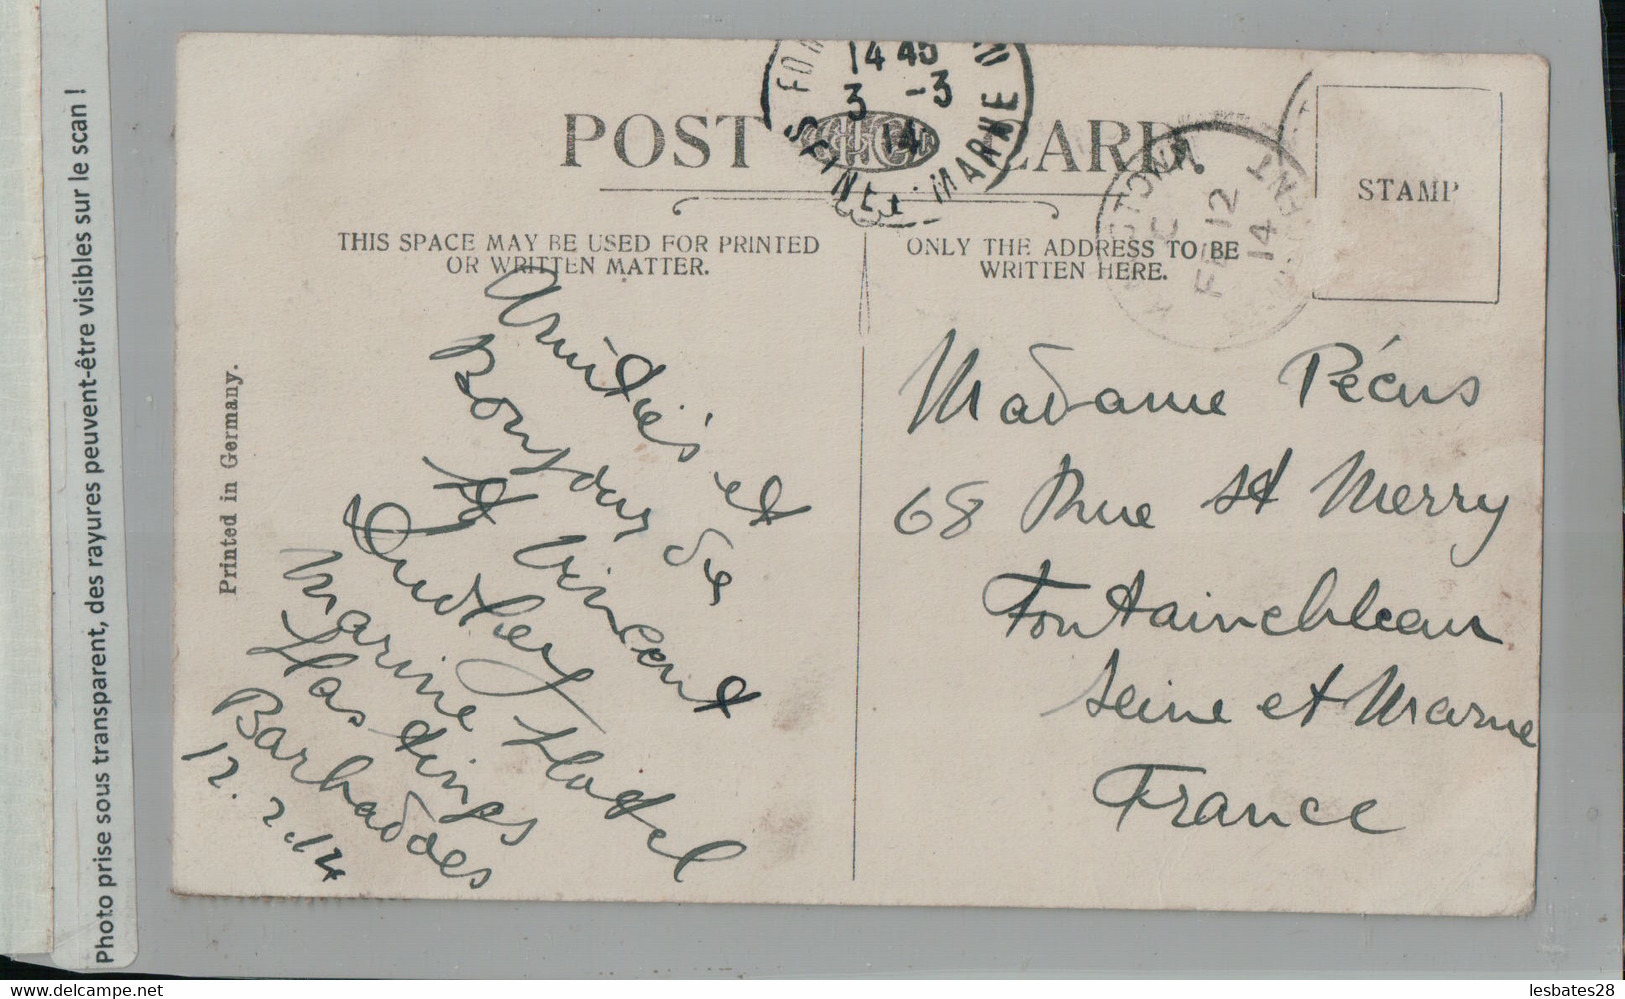 Photo prise sous transparent, des rayures peuvent-être visibles sur le scan !
POST CARD.
14 45
3 -3
14
SEINE MARNE
TOWN
C
FE 12
14
STAMP
THIS SPACE MAY BE USED FOR PRINTED
OR WRITTEN MATTER.
ONLY THE ADDRESS TO BE
WRITTEN HERE.
Printed in Germany.
Amitiés et
Bonjour de
St Vincent
Marine Hotel
Hastings
Barbadoes
12.2.14
Madame Pécus
68 Rue St Merry
Fontainebleau
Seine et Marne
France
www.delcampe.net
lesbates28